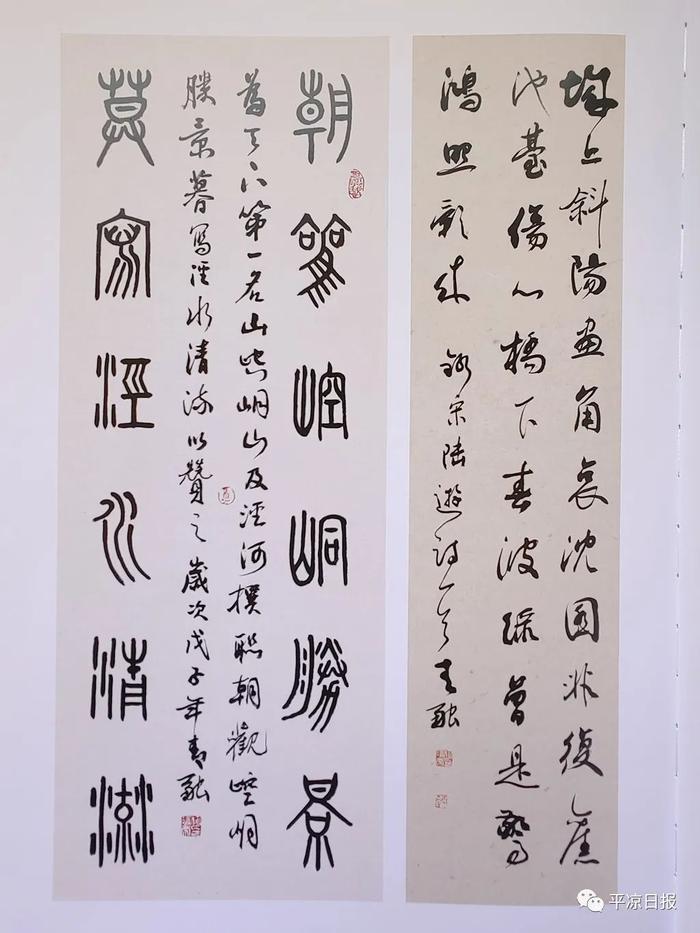 城上斜陽画角哀沈園非復舊
池臺傷心橋下春波綠曾是驚
鴻照影來 錄宋陆遊詩一首 青融
朝觀崆峒勝景
為天下第一名山崆峒山及涇河撰聯朝觀崆峒
勝景暮寫涇水清流以贊之歲次戊子年青融
莫寫涇水清流
平凉日报